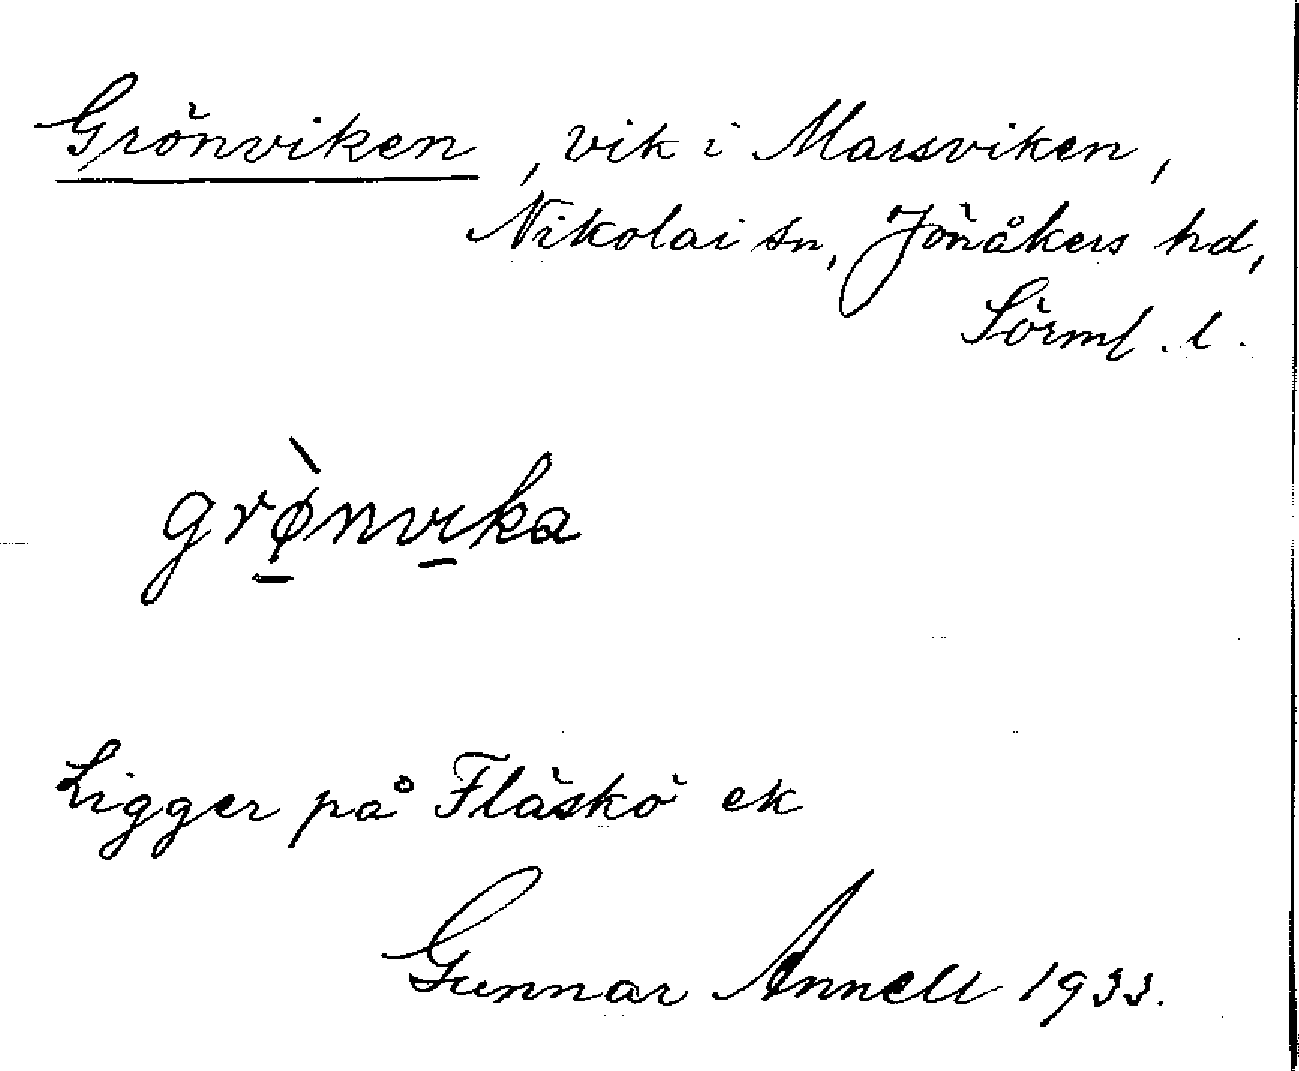 Grönviken, vik i Marsviken,
Nikolai sn, Jönåkers hd,
Sörml. l.
grø̀nvika
Ligger på Fläskö ek
Gunnar Annell 1933.